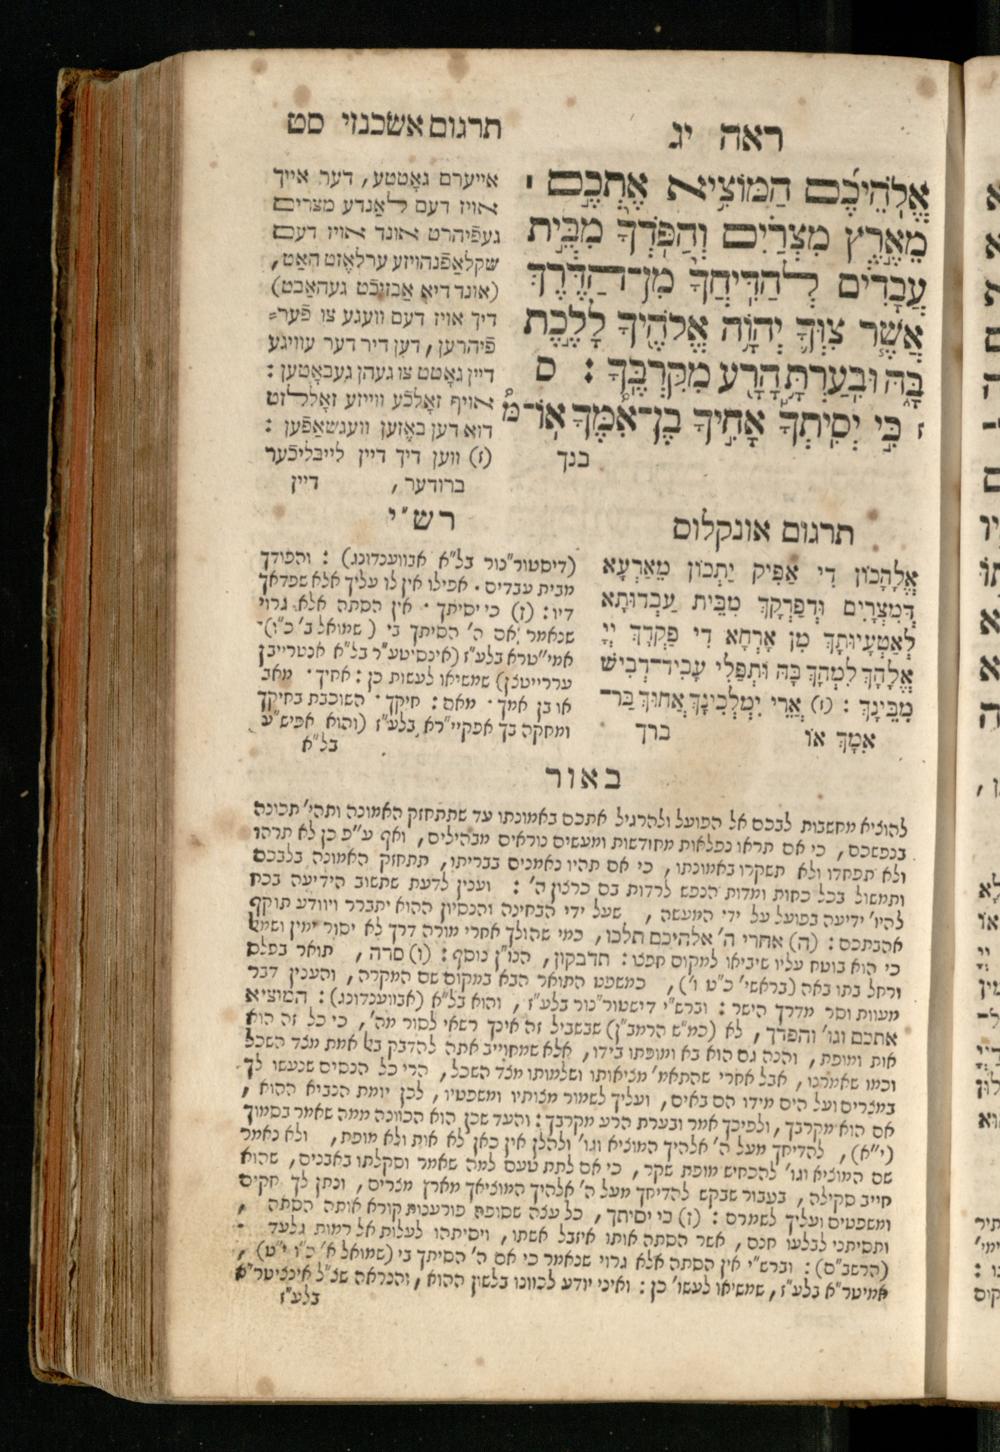 ראה יג
תרגום אשכנזי סט
אֱלֹהֵיכֶם הַמּוֹצִיא אֶתְכֶם ׀
מֵאֶרֶץ מִצְרַיִם וְהַפֹּדְךָ מִבֵּית
עֲבָדִים לְהַדִּיחֲךָ מִן־הַדֶּרֶךְ
אֲשֶׁר צִוְּךָ יְהוָה אֱלֹהֶיךָ לָלֶכֶת
בָּהּ וּבִעַרְתָּ הָרָע מִקִּרְבֶּךָ : ס
ז כִּי יְסִיתְךָ אָחִיךָ בֶן־אִמֶּךָ אוֹ־
בנך
אייערם גאָטטע, דער אייך
אויז דעם לאַנדע מצרים
געפֿיהרט אונד אויז דעם
שקלאַפֿנהויזע ערלאָזט האַט,
(אונד דיא אבזיכֿט געהאַבט)
דיך אויז דעם וועגע צו פֿער=
פֿיהרען, דען דיר דער עוויגע
דיין גאָטט צו געהן געבאָטען :
אויף זאָלכֿע ווייזע זאָללזט
דוא דען באָזען וועגשאַפֿען :
(ז) ווען דיך דיין לייבליכֿער
ברודער, דיין
תרגום אונקלוס
אֱלָהָכוֹן דִי אַפִּיק יַתְכוֹן מֵאַרְעָא
דְמִצְרַיִם וּדְפַרְקָךְ מִבֵּית עַבְדוּתָא
לְאַטְעָיוּתָךְ מִן אָרְחָא דִי פַקְדָךְ יְיָ
אֱלָהָךְ לִמְהָךְ בָּהּ וּתְפַלִּי עָבִיד־דְבִישׁ
מִבֵּינָךְ : (ז) אֲרֵי יִמְלְכִינָךְ אָחוּךְ בַּר־
אִמָּךְ אוֹ ברך
רש״י
(דיסטור״נור בל״א אבווענדונג) : והפודך
מבית עבדים. אפילו אין לו עליך אלא שפדאך
דיו : (ז) כי יסיתך. אין הסתה אלא גרוי
שנאמר אם ה׳ הסיתך בי (שמואל ב׳ כ״ו).
אמי״טרא בלע״ז (אינסיטע״ר בל״א אנטרייבן
ערرייטצן) שמשיאו לעשות כן : אחיך. מאב
או בן אמך. מאם : חיקך. השוכבת בחיקך
ומחקה בך אפקיי״רא בלע״ז (והוא אפיש״ע
בל״א
באור
להוציא מחשבות לבכם אל הפועל ולהרגיל אתכם באמונתו עד שתתחזק האמונה ותהי׳ תכונה
בנפשכם, כי אם תראו נפלאות מחודשות ומעשים נוראים מבהילים, ואף ע״פ כן לא תרהו
ולא תפחדו ולא תשקרו באמונתו, כי אם תהיו נאמנים בבריתו, תתחזק האמונה בלבכם
ותמשול בכל כחות ומדות הנפש לרדות בם כרצון ה׳ : וענין לדעת שתשוב הידיעה בכח
להיו׳ ידיעה בפועל על ידי המעשה, שעל ידי הבחינה והנסיון ההוא יתברר ויוודע תוקף
אהבתכם : (ה) אחרי ה׳ אלהיכם תלכו, כמי שהולך אחרי מורה דרך לא יסור ימין ושמאל
כי הוא בוטח עליו שיביאו למקום חפצו : תדבקון, הנו״ן נוסף : (ו) סרה, תואר בפלס
ורחל בתו באה (בראשי׳ כ״ט ו׳), כמשפט התואר הבא במקום שם המקרה, והענין דבר
מעוות וסר מדרך הישר : וברש״י דישטור״נור בלע״ז, והוא בל״א (אבווענדונג) : המוציא
אתכם וגו׳ והפדך, לא (כמ״ש הרמב״ן) שבשביל זה אינך רשאי לסור מה׳, כי כל זה הוא
אות ומופת, והנה גם הוא בא ומופתו בידו, אלא שמחוייב אתה להדבק בו אמת מצד השכל
וכמו שאמרנו, אבל אחרי שהתאמ׳ מציאותו ושלמותו מצד השכל, הרי כל הנסים שנעשו לך
במצרים ועל הים מידו הם באים, ועליך לשמור מצותיו ומשפטיו, לכן יומת הנביא ההוא,
אם הוא מקרבך, ולפיכך אמר ובערת הרע מקרבך : והעד שכן הוא הכוונה ממה שאמר בסמוך
(י״א), להדיחך מעל ה׳ אלהיך המוציא וגו׳ ולהלן אין כאן לא אות ולא מופת, ולא נאמר
שם המוציא וגו׳ להכחיש מופת שקר, כי אם לתת טעם למה שאמר וסקלתו באבנים, שהוא
חייב סקילה, בעבור שבקש להדיחך מעל ה׳ אלהיך המוציאך מארץ מצרים, ונתן לך חקים
ומשפטים ועליך לשמרם : (ז) כי יסיתך, כל עצה שסופה פורענות קורא אותה הסתה,
ותסיתני לבלעו חנם, אשר הסתה אותו איזבל אשתו, ויסיתהו לעלות אל רמות גלעד.
(הרשב״ם) : וברש״י אין הסתה אלא גרוי שנאמר כי אם ה׳ הסיתך בי (שמואל א׳ כ״ו י״ט),
אמיטר״א בלע״ז, שמשיאו לעשו׳ כן : ואיני יודע לכוונו בלשון ההוא, והנראה שצ״ל אינציטר״א
בלע״ז